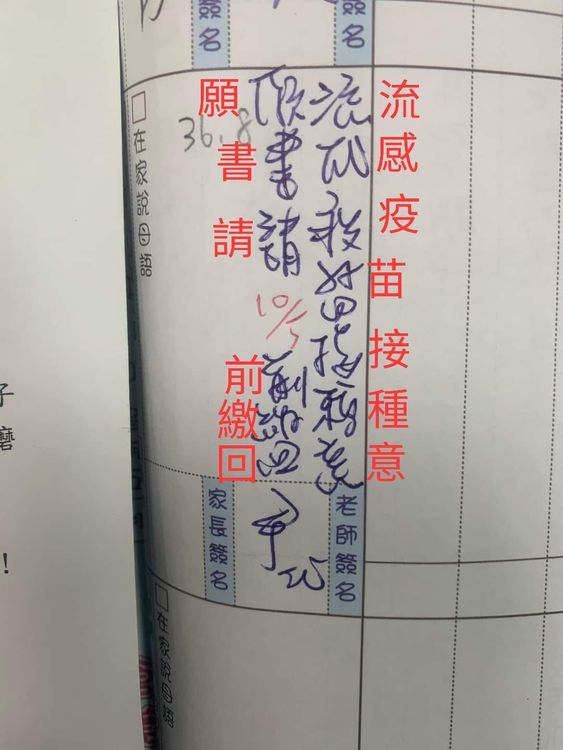 簽名
簽名
流感疫苗接種意
流感疫苗接種意
願書請10/5前繳回
願書請 前繳回
36.8
在家說母語
老師簽名
家長簽名
在家說母語
子
磨
！